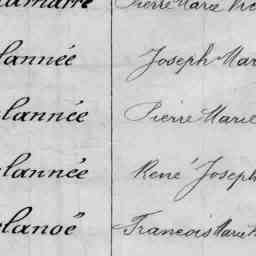 lamarre Pierre Marie Vic
lannée Joseph Mar
lannée Pierre Marie
lannée René Joseph
lanoë François Marie